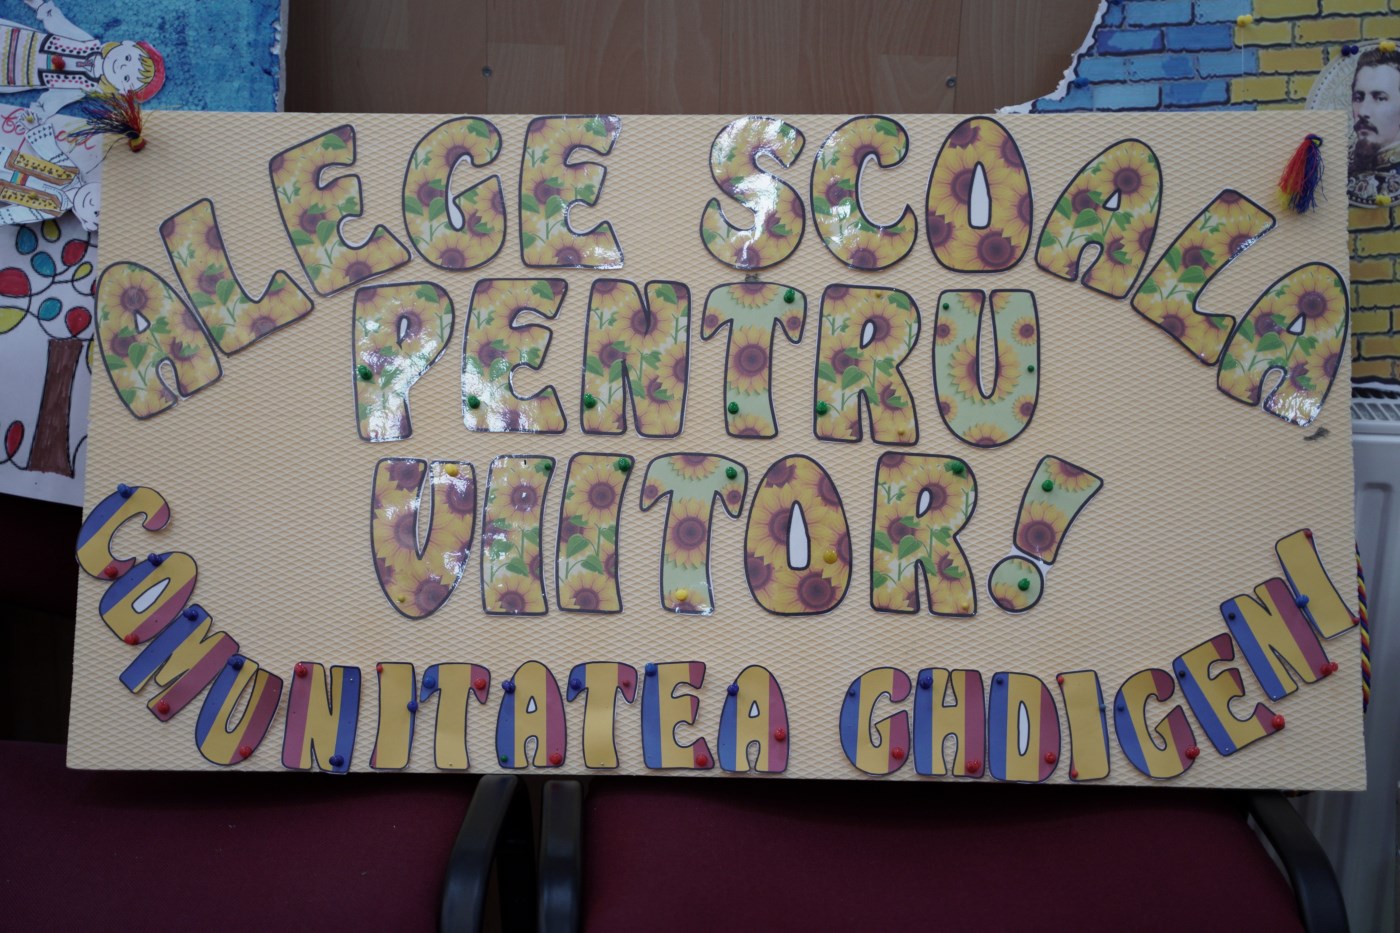 ALEGE SCOALA
PENTRU
VIITOR!
COMUNITATEA GHDIGENI